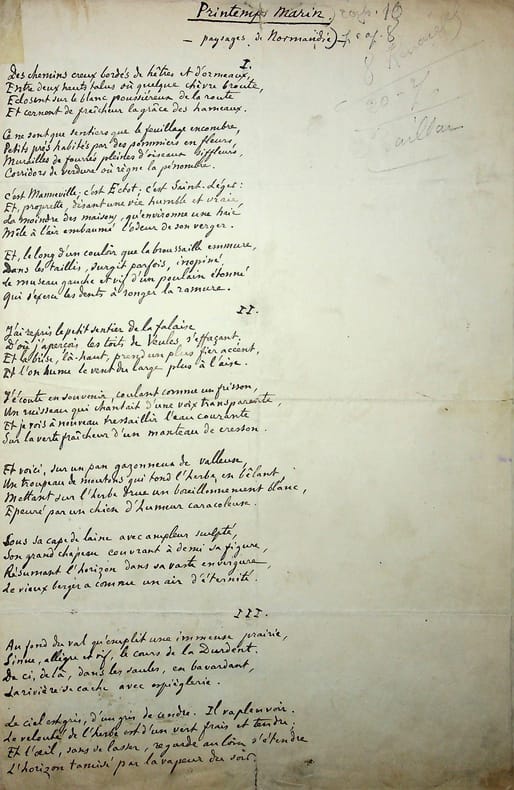 Printemps Marin
— paysages de Normandie) —
I.
Des chemins creux bordés de hêtres et d'ormeaux,
Entre deux hauts talus où quelque chèvre broute,
Eclosent sur le blanc poussiéreux de la route
Et cernent de fraîcheur la grâce des hameaux.
Ce ne sont que sentiers que le feuillage encombre,
Petits prés habités par des pommiers en fleurs,
Murailles de fourrés pleines d'oiseaux siffleurs,
Corridors de verdure où règne la pénombre.
C'est Manneville; c'est Ectot; c'est Saint-Léger:
Et, proprette, disant une vie humble et vraie,
La moindre des maisons, qu'environne une haie
Mêle à l'air embaumé l'odeur de son verger.
Et, le long d'un couloir que la broussaille emmure,
Dans les taillis, surgit parfois, inopiné
Le museau gauche et vif d'un poulain étonné
Qui s'exerce les dents à ronger la ramure.
II.
J'ai repris le petit sentier de la falaise
D'où j'aperçois les toits de Veules s'effaçant,
Et la bise, là-haut, prend un plus fier accent,
Et l'on hume le vent du large plus à l'aise.
J'écoute en souvenir, coulant comme un frisson,
Un ruisseau qui chantait d'une voix transparente,
Et je vois à nouveau tressaillir l'eau courante
Sur la verte fraîcheur d'un manteau de cresson.
Et voici, sur un pan gazonneux de valleuse,
Un troupeau de moutons qui tond l'herbe en bêlant,
Mettant sur l'herbe drue un bouillonnement blanc,
Epeuré par un chien d'humeur caracoleuse.
Sous sa cape de laine avec ampleur sculpté,
Son grand chapeau couvrant à demi sa figure,
Résumant l'horizon dans sa vaste envergure,
Le vieux berger a comme un air d'éternité.
III.
Au fond du val qu'emplit une immense prairie,
Sinue, allègre et vif, le cours de la Durdent.
De ci, de là, dans les saules, en bavardant,
La rivière se cache avec espièglerie.
Le ciel est gris, d'un gris de cendre. Il va pleuvoir.
Le velouté de l'herbe est d'un vert frais et tendre;
Et l'œil, sans se lasser, regarde au loin s'étendre
L'horizon tamisé par la vapeur du soir.